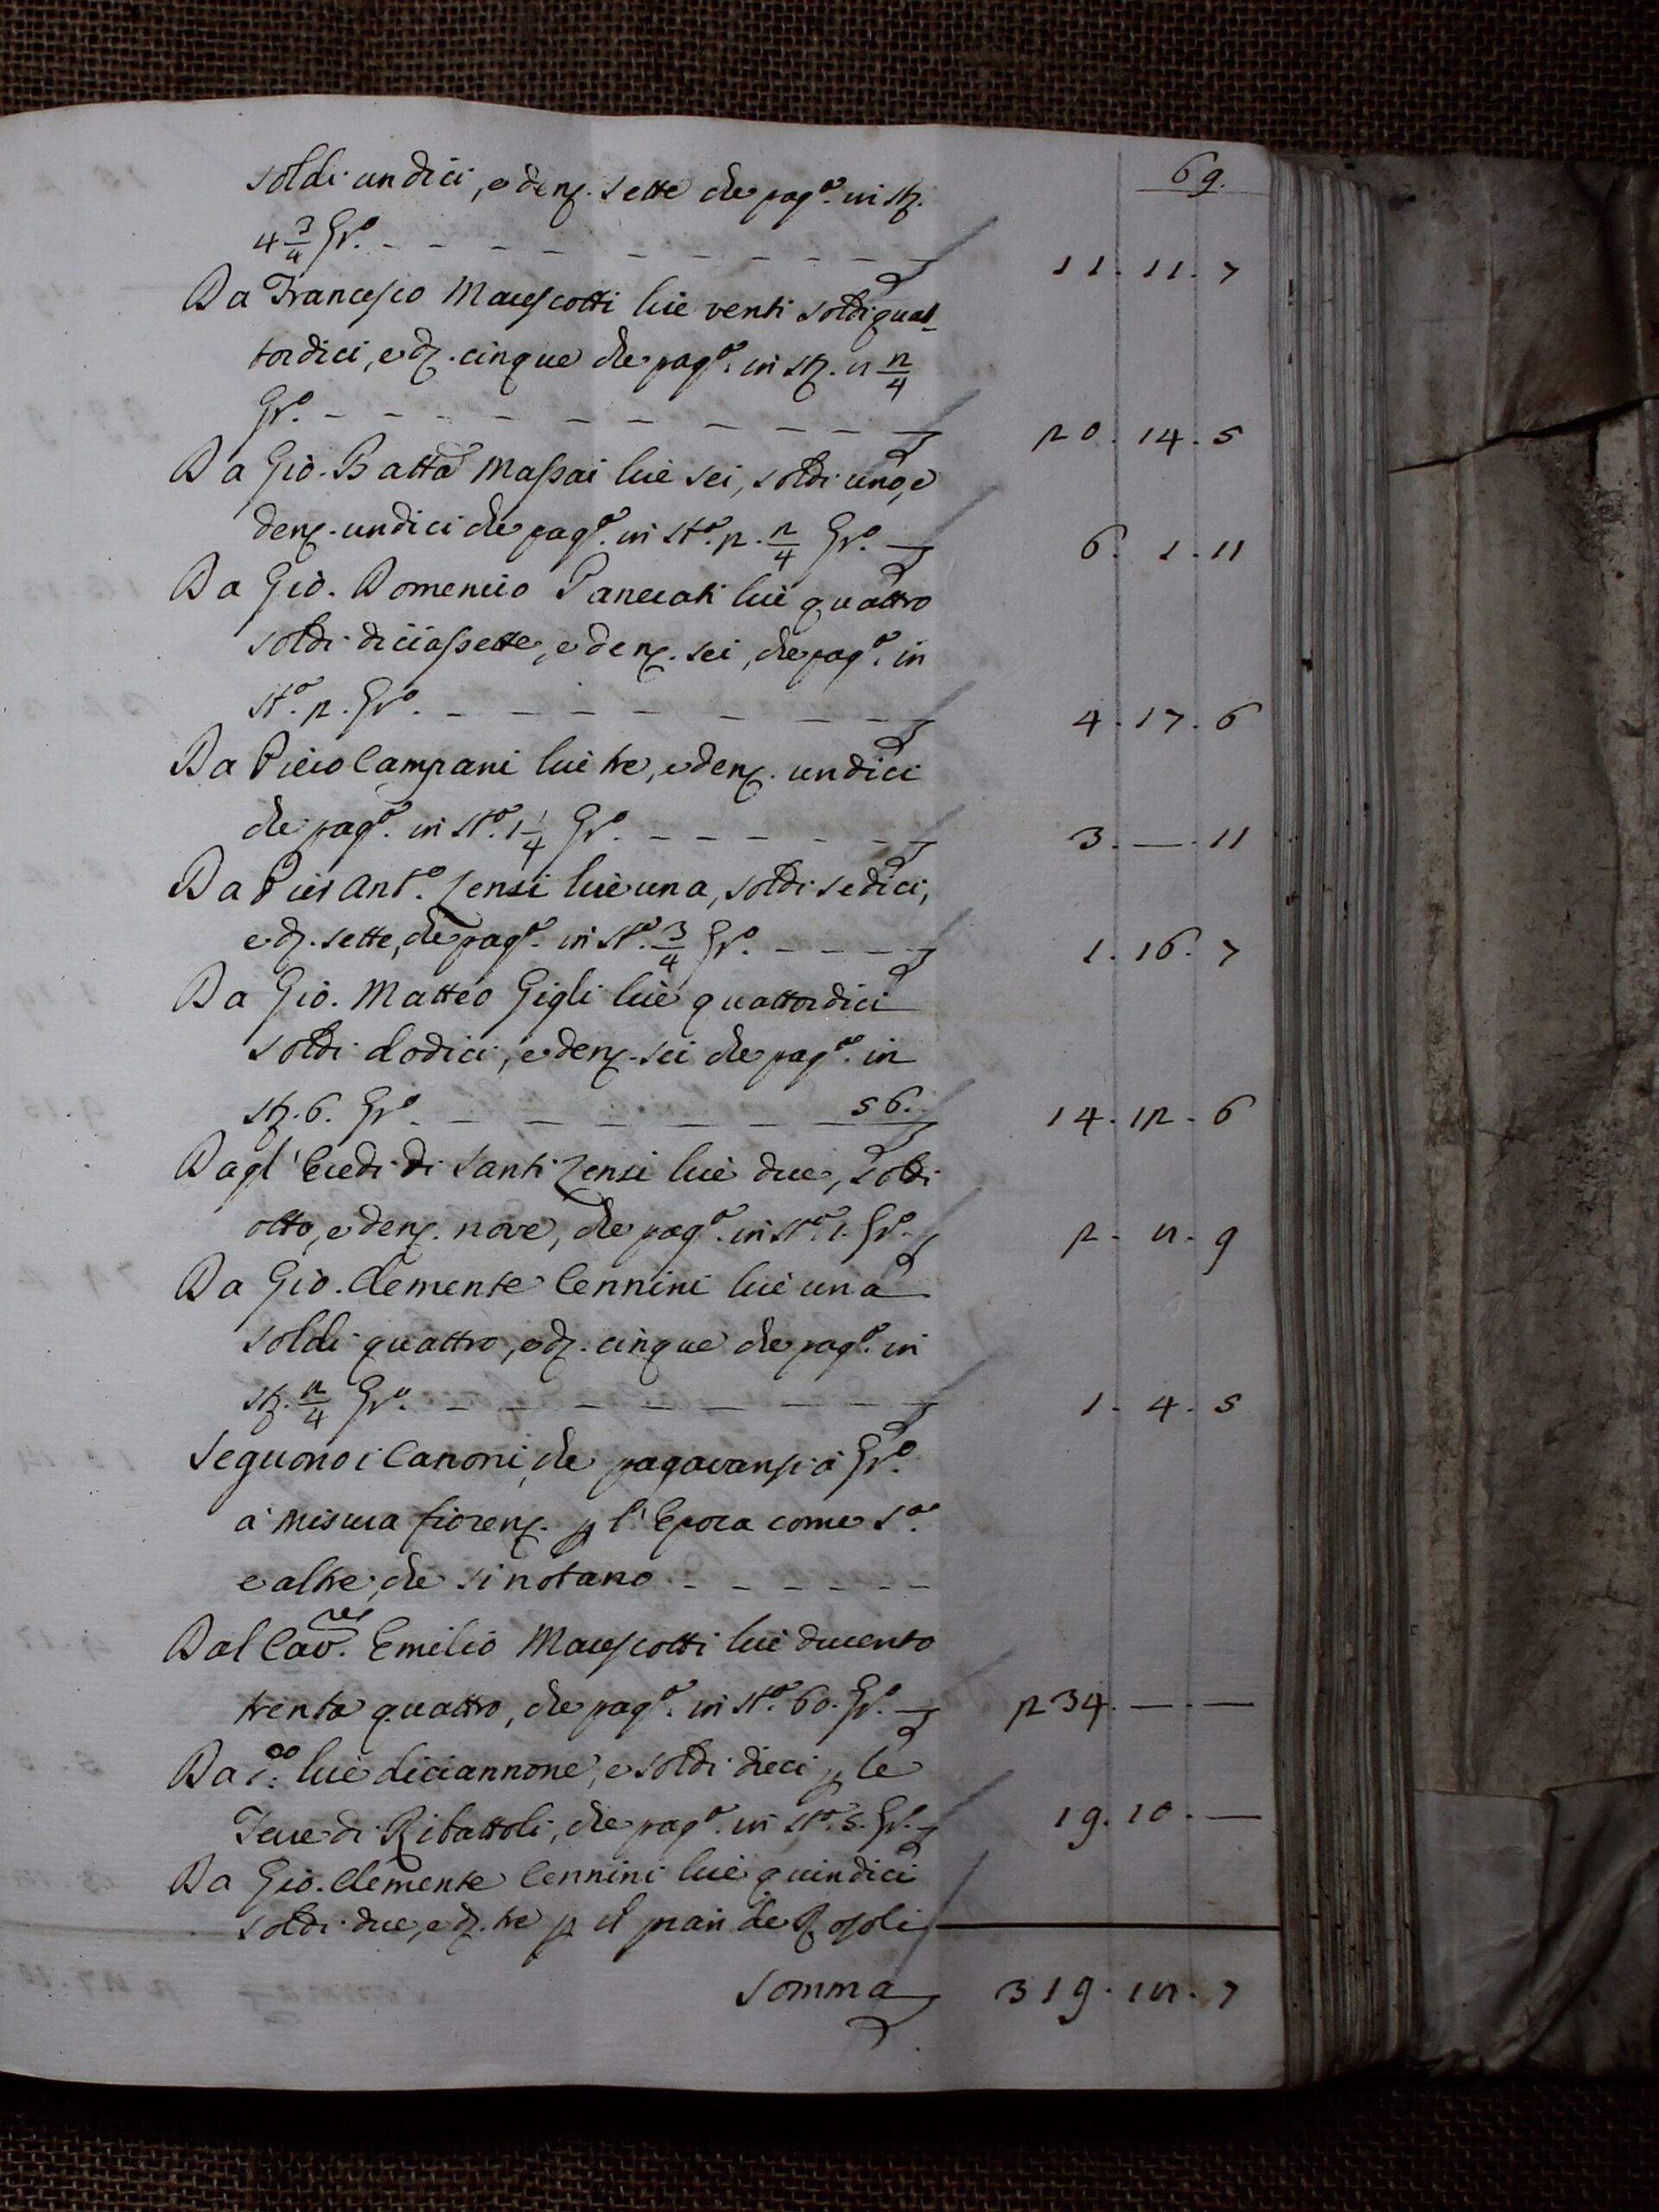 soldi undici, e denz. sette che pag.o in stz.
4 3/4 Gr.o - - - - - - - - - -
11. 11. 7
69.
Da Francesco Marescotti lire venti soldi quat-
tordici, e dz. cinque che pag.o in stz. 8 2/4
Gr.o - - - - - - - - -
20. 14. 5
Da Gio. Batta Massai lire sei, soldi uno, e
denz. undici che pag.o in st.o 2. 2/4 Gr.o
6. 1. 11
Da Gio. Domenico lire quattro
soldi diciassette, e denz. sei, che pag.o in
st.o 2. Gr.o - - - - - - - -
4. 17. 6
Da Piero Campani lire tre, e denz. undici
che pag.o in st.o 1 1/4 Gr.o - - - - - -
3. — . 11
Da Pier Ant.o Zensi lire una, soldi sedici,
e dz. sette, che pag.o in st.o 3/4 Gr.o - - - -
1. 16. 7
Da Gio. Matteo Gigli lire quattordici
soldi dodici, e denz. sei che pag.o in
stz. 6. Gr.o - - - - - - - 56.
14. 12. 6
Dagl' Eredi di Santi Zensi lire due, soldi
otto, e denz. nove, che pag.o in st.o 1. Gr.o
2. 8. 9
Da Gio. Clemente Cennini lire una
soldi quattro, e dz. cinque che pag.o in
stz. 2/4 Gr.o - - - - - - - -
1. 4. 5
Seguono i Canoni, che pagavansi à Gr.o
à misura fiorenz. p l'Epoca come s.a
e altre, che si notano - - - - - -
Dal Cav.re Emilio Marescotti lire ducento
trenta quattro, che pag.o in st.o 60. Gr.o
234. — . —
Da d.o lire diciannove, e soldi dieci p le
Terre di Ribattoli, che pag.o in st.o 5. Gr.o
19. 10. —
Da Gio. Clemente Cennini lire quindici
soldi due, e dz. tre p il pian de Rosoli
Somma 319. 18. 7